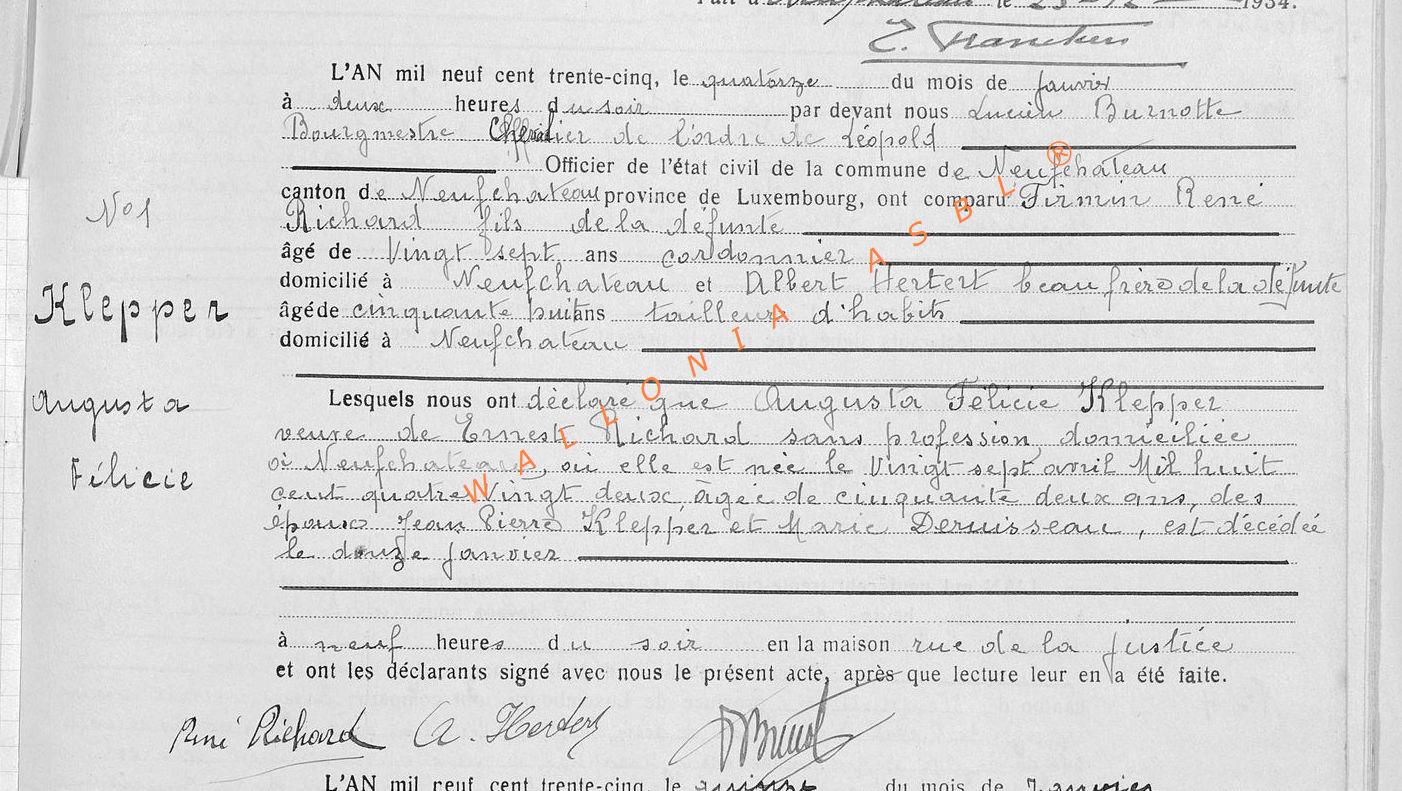 Fait à Neufchâteau le 23-12 1934.
L'AN mil neuf cent trente-cinq, le quatorze du mois de Janvier
à deux heures du soir par devant nous Lucien Burnotte
Bourgmestre Chevalier de l'ordre de Léopold
Officier de l'état civil de la commune de Neufchateau
canton de Neufchateau province de Luxembourg, ont comparu Firmin René
Richard fils de la défunte
âgé de Vingt sept ans cordonnier
domicilié à Neufchateau et Albert Hertert beau frère de la défunte
âgé de cinquante huit ans tailleur d'habits
domicilié à Neufchateau
N° 1
Klepper
Augusta
Félicie
Lesquels nous ont déclaré que Augusta Félicie Klepper
veuve de Ernest Richard sans profession domiciliée
à Neufchateau, où elle est née le Vingt sept avril Mil huit
cent quatre Vingt deux, âgée de cinquante deux ans, des
époux Jean Pierre Klepper et Marie Deruisseau, est décédée
le douze Janvier
à neuf heures du soir en la maison rue de la Justice
et ont les déclarants signé avec nous le présent acte, après que lecture leur en a été faite.
René Richard A. Hertert
L'AN mil neuf cent trente-cinq, le quinze du mois de Janvier
WALLONIA ASBL ®